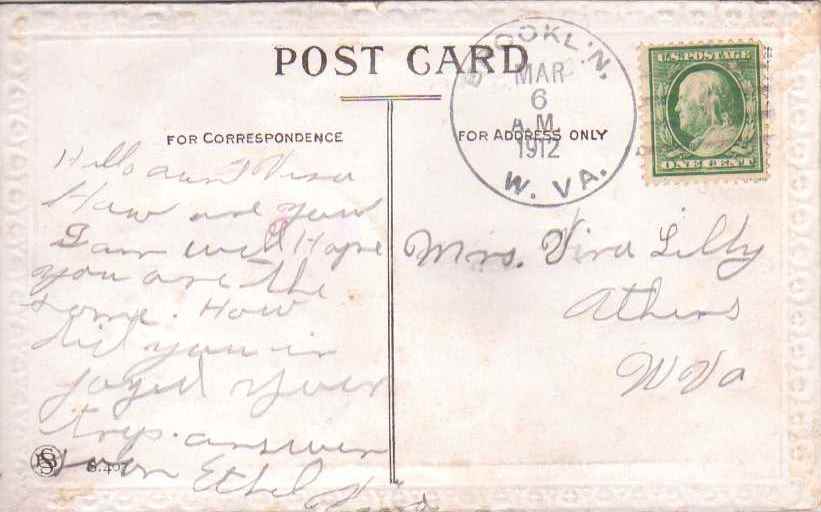 POST CARD
BROOKLYN,
MAR
6
A.M.
1912
W. VA.
U.S. POSTAGE
ONE CENT
FOR CORRESPONDENCE
FOR ADDRESS ONLY
Hello aunt Vira
How are you
I am well Hope
you are the
same. How
did you in
joyed your
trip. answer
soon Ethel
S. 407
Mrs. Vira Lilly
Athens
W Va